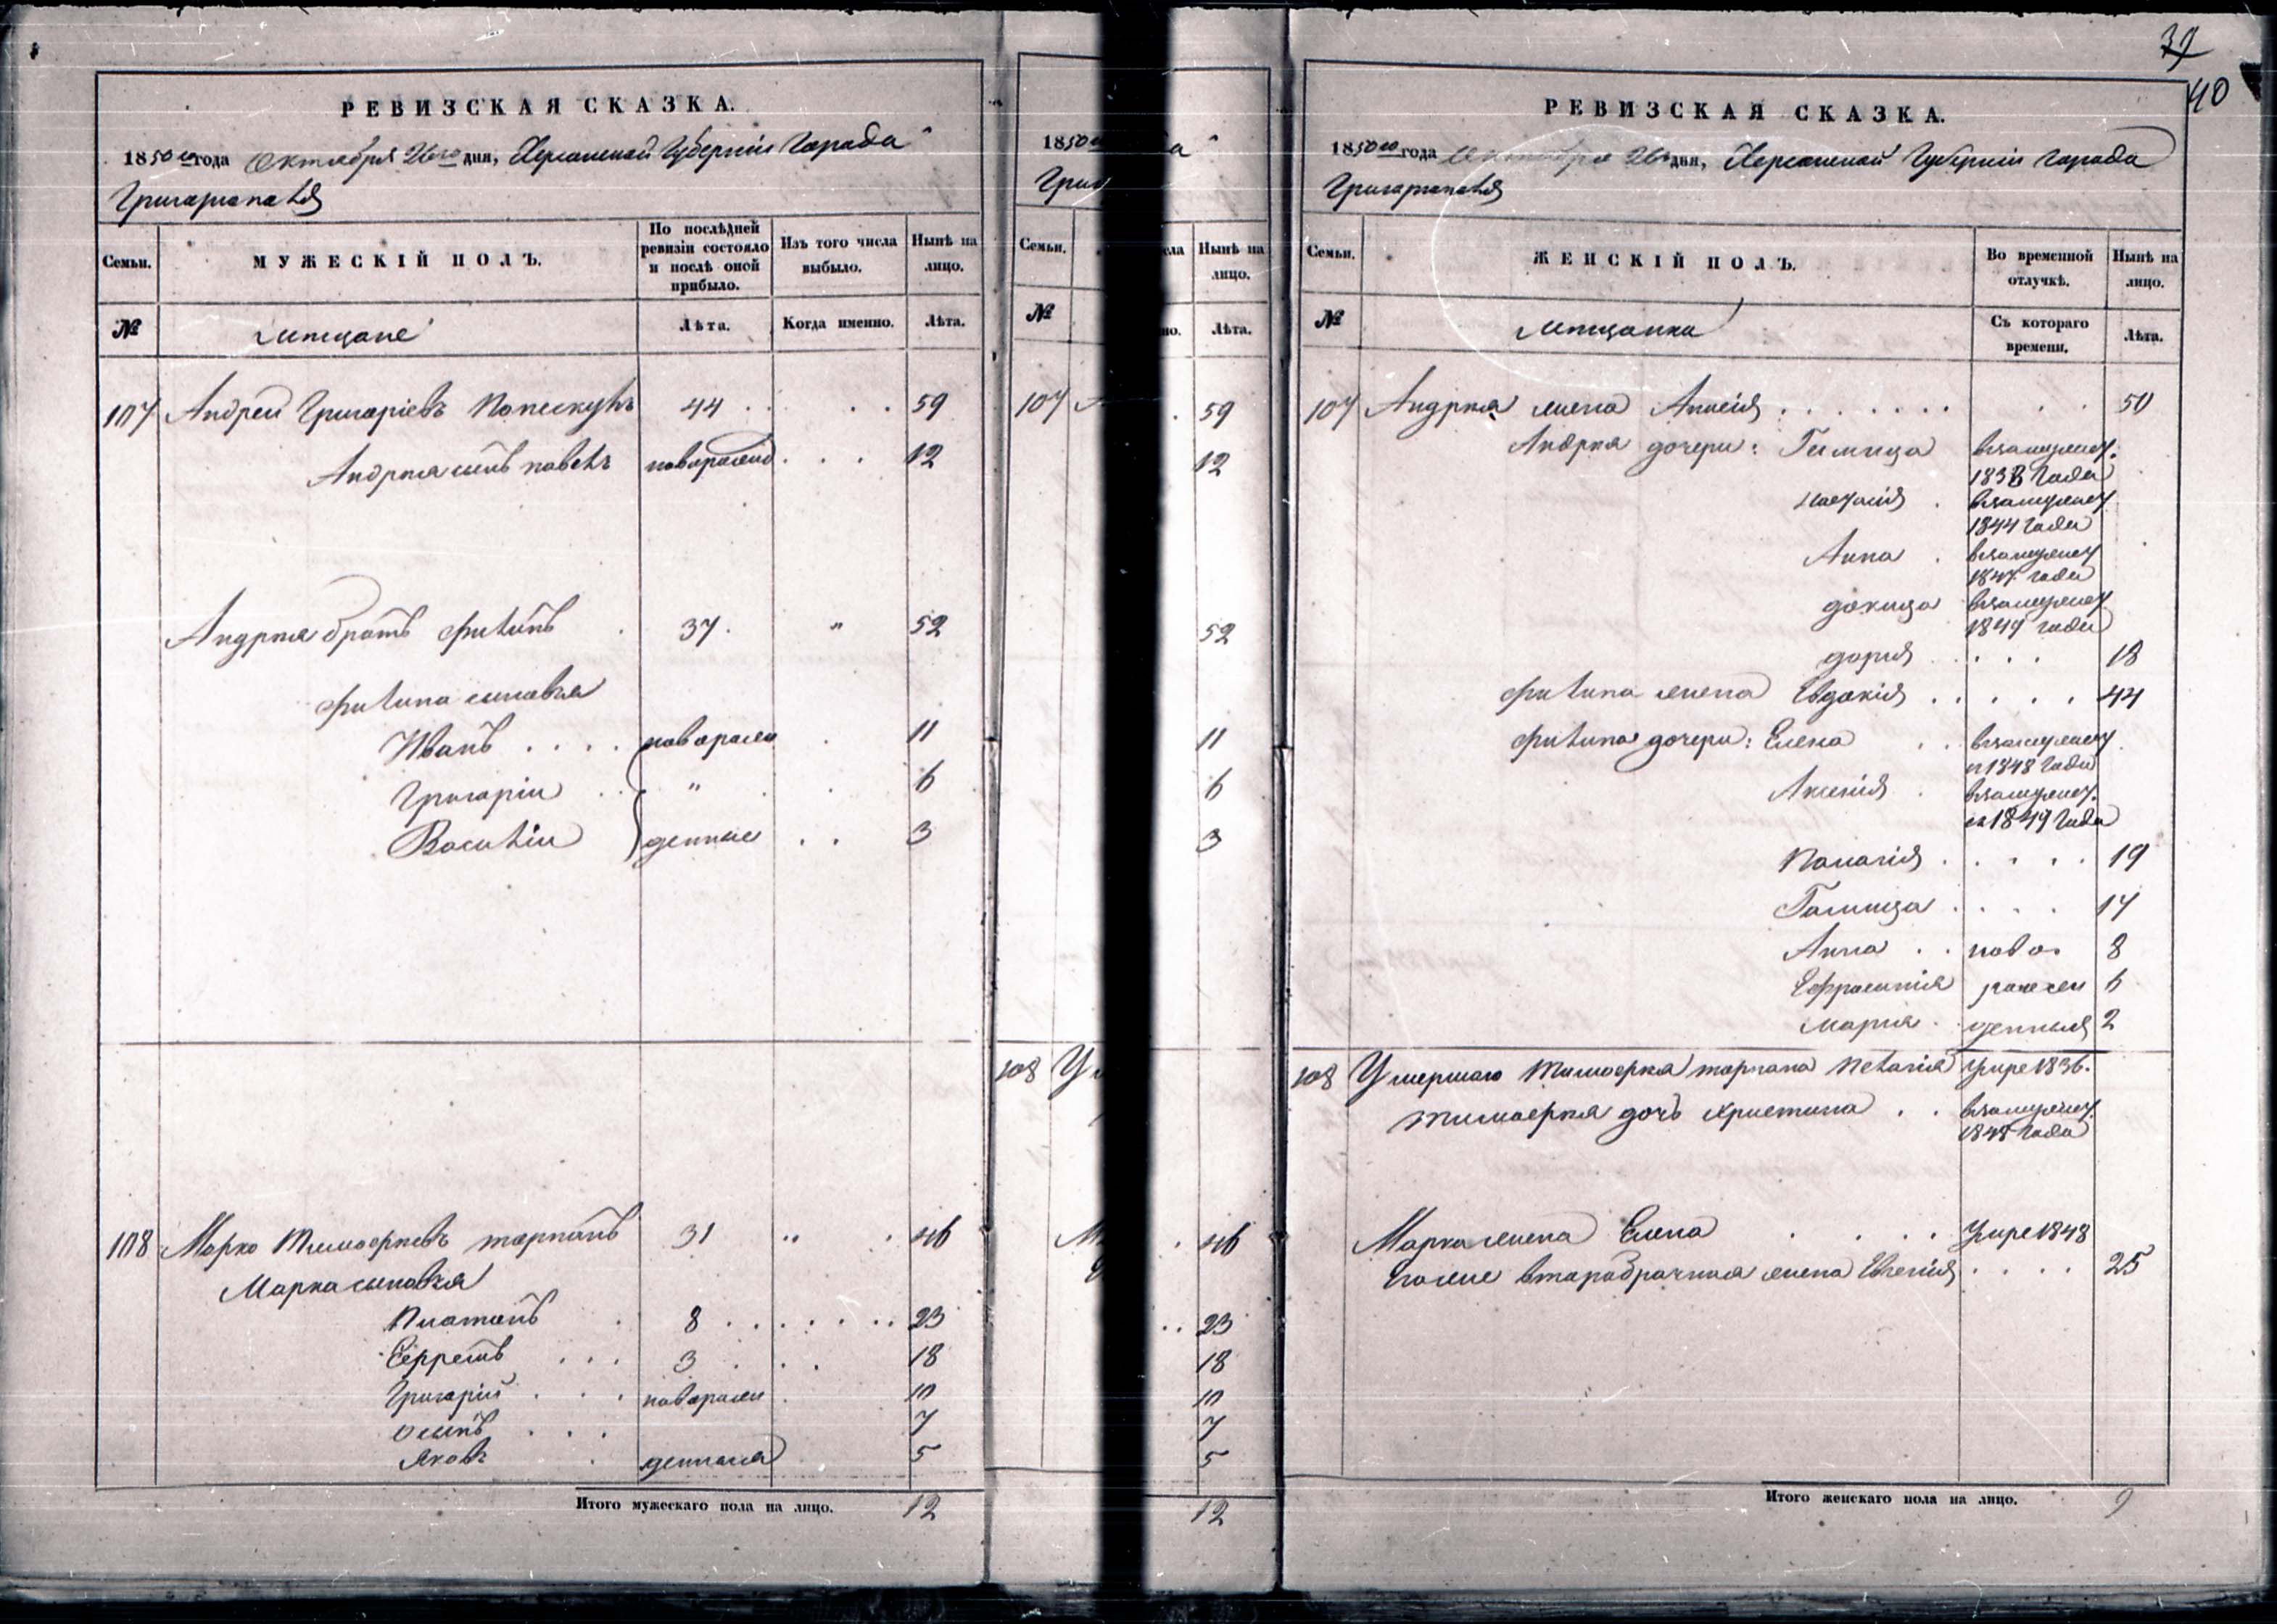 РЕВИЗСКАЯ СКАЗКА.
1850го года Октября 26го дня, Херсонской Губернiи Города
Григорiополя
Семьи.
МУЖЕСКIЙ ПОЛЪ.
По послѣдней ревизiи состояло и послѣ оной прибыло.
Изъ того числа выбыло.
Нынѣ на лицо.
№
мѣщане
Лѣта.
Когда именно.
Лѣта.
107 Андрей Григорiевъ 44 59
Андрея сынъ Павелъ новорожд 12
Андрея братъ Филипъ 37 " 52
Филипа сыновья
Иванъ новорож 11
Григорiй " 6
Василiй денные 3
108 Марко Тимофеевъ 31 " 46
Марка сыновья
Платонъ 8 23
Ефремъ 3 18
Григорiй новорож 10
Осипъ 7
Яковъ денныя 5
Итого мужескаго пола на лицо. 12
1850
Григ
Семьи.
сла
Нынѣ на лицо.
№
но.
Лѣта.
107 А 59
12
52
11
6
3
108 У
М 46
23
18
10
7
5
12
39
40
РЕВИЗСКАЯ СКАЗКА.
1850го года Октября 26го дня, Херсонской Губернiи города
Григорiополя
Семьи.
ЖЕНСКIЙ ПОЛЪ.
Во временной отлучкѣ.
Нынѣ на лицо.
№
мѣщанки
Съ котораго времени.
Лѣта.
107 Андрея жена 50
Андрея дочери: взамужест.
1838 года
Настасiя взамужест
1844 года
Анна взамужест
1847 года
Докица взамужест
1849 года
Дарiя 18
Филипа жена Евдокiя 44
Филипа дочери: Елена взамужест
1848 года
Аксенiя взамужест.
1849 года
19
17
Анна ново 8
6
Марiя денныя 2
108 Умершаго Тимофея Пелагiя умре 1836.
Тимофея дочь Христина взамужест.
1848 года
Марка жена Елена умре 1848
Егоже второбрачная жена Евгенiя 25
Итого женскаго пола на лицо. 9